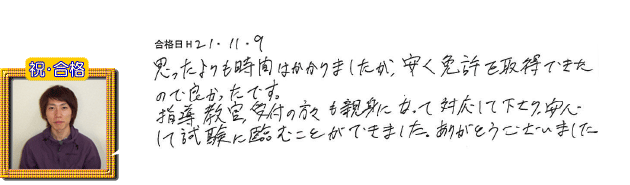 祝・合格
合格日 H 21・11・9
思ったよりも時間はかかりましたが、安く免許を取得できた
ので良かったです。
指導教官、受付の方々も親身になって対応して下さり、安心
して試験に臨むことができました。ありがとうございました